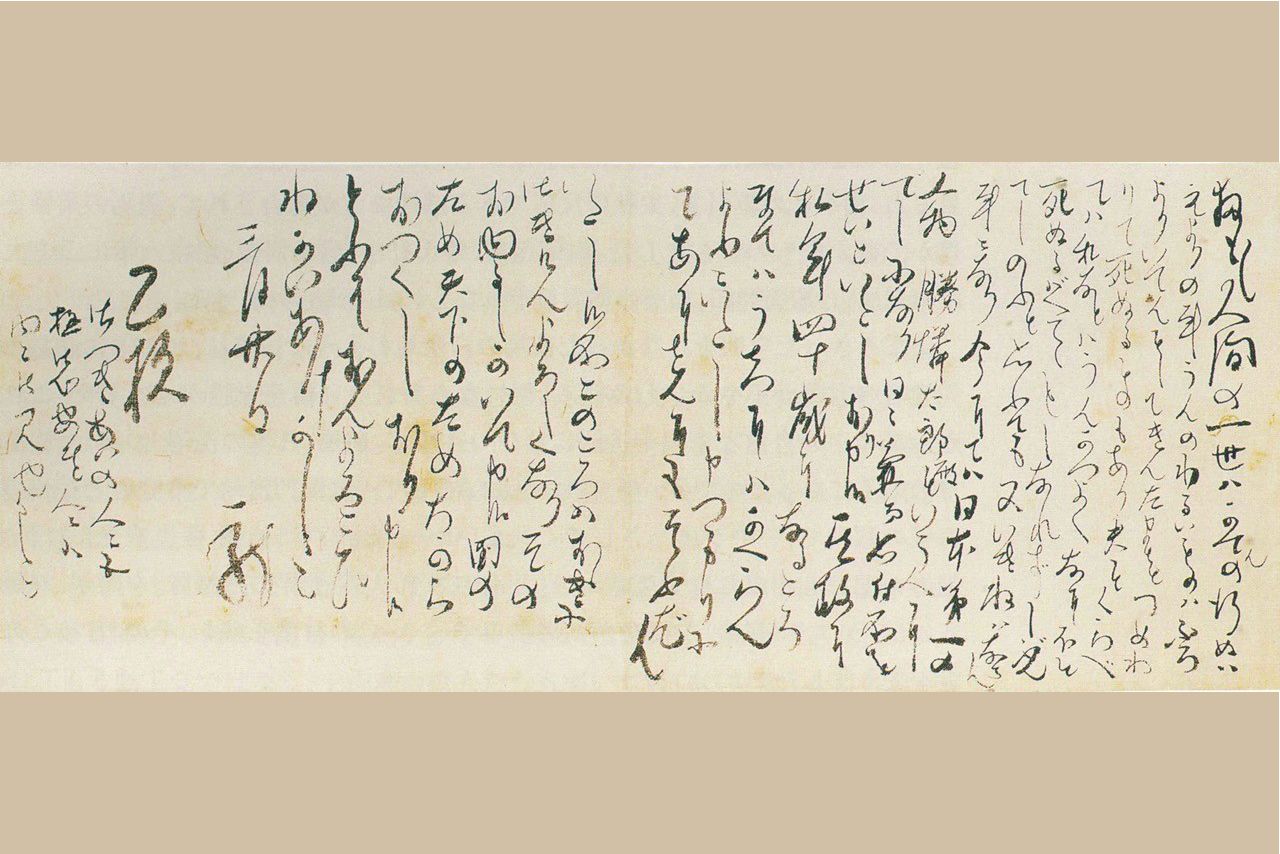 扨も〳〵人間の一世ハかてんの行ぬハ
元よりの事うんのわるいものハふろ
よりいでんとしてきんたまをつめわ
りて死ぬるものもあり夫とくらべ
てハ私などハうんかつよくなにほと
死ぬるバへでゝもしなれずじぶん
でしのふと思ふても又いきねバならん
事ニなり今にてハ日本第一の
人物勝憐太郎殿という人に
でしになり日々兼而思付所を
せいといたしおり申候其故に
私年四十歳になるころ
までハうちにハかへらん
よふにいたし申つもりに
てあにさんにもそふだん
いたし候所このごろハおおきに
御きげんよろしくなりその
おゆるしがいで申候国の
ため天下のためちから
おつくしおり申候
どふぞおんよろこび
ねがいあげかしこ
三月廿日　龍
乙様
御つきあいの人ニも
極御心安き人ニハ
内々御見せかしこ